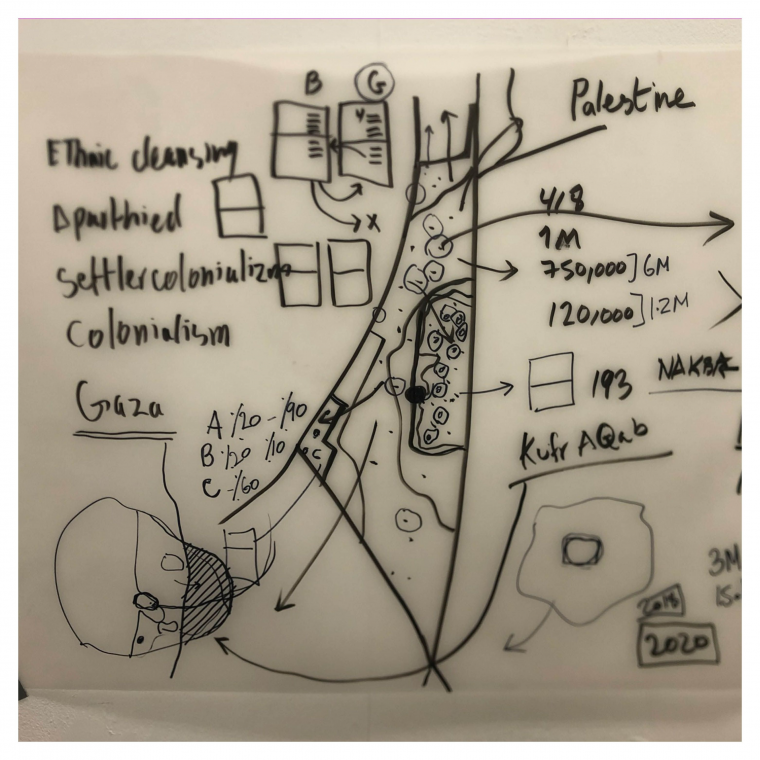 B G
Palestine
EThnic cleansing
Aparthied
Settlercolonializm
Colonialism
418
1M
750,000]6M
120,000]1.2M
193
NAKBA
Kufr AQab
Gaza
A ٪20 - ٪90
B ٪20 ٪10
C - ٪60
C
3M
15.
2018
2020